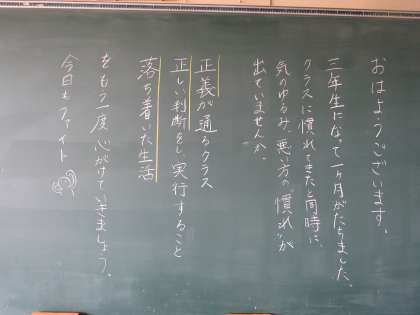 おはようございます。
三年生になって一ヶ月がたちました。
クラスに慣れてきたと同時に、
気のゆるみ、悪い方の〝慣れ〟が
出ていませんか。
正義が通るクラス
正しい判断をし実行すること
落ち着いた生活
をもう一度心がけていきましょう。
今日もファイト